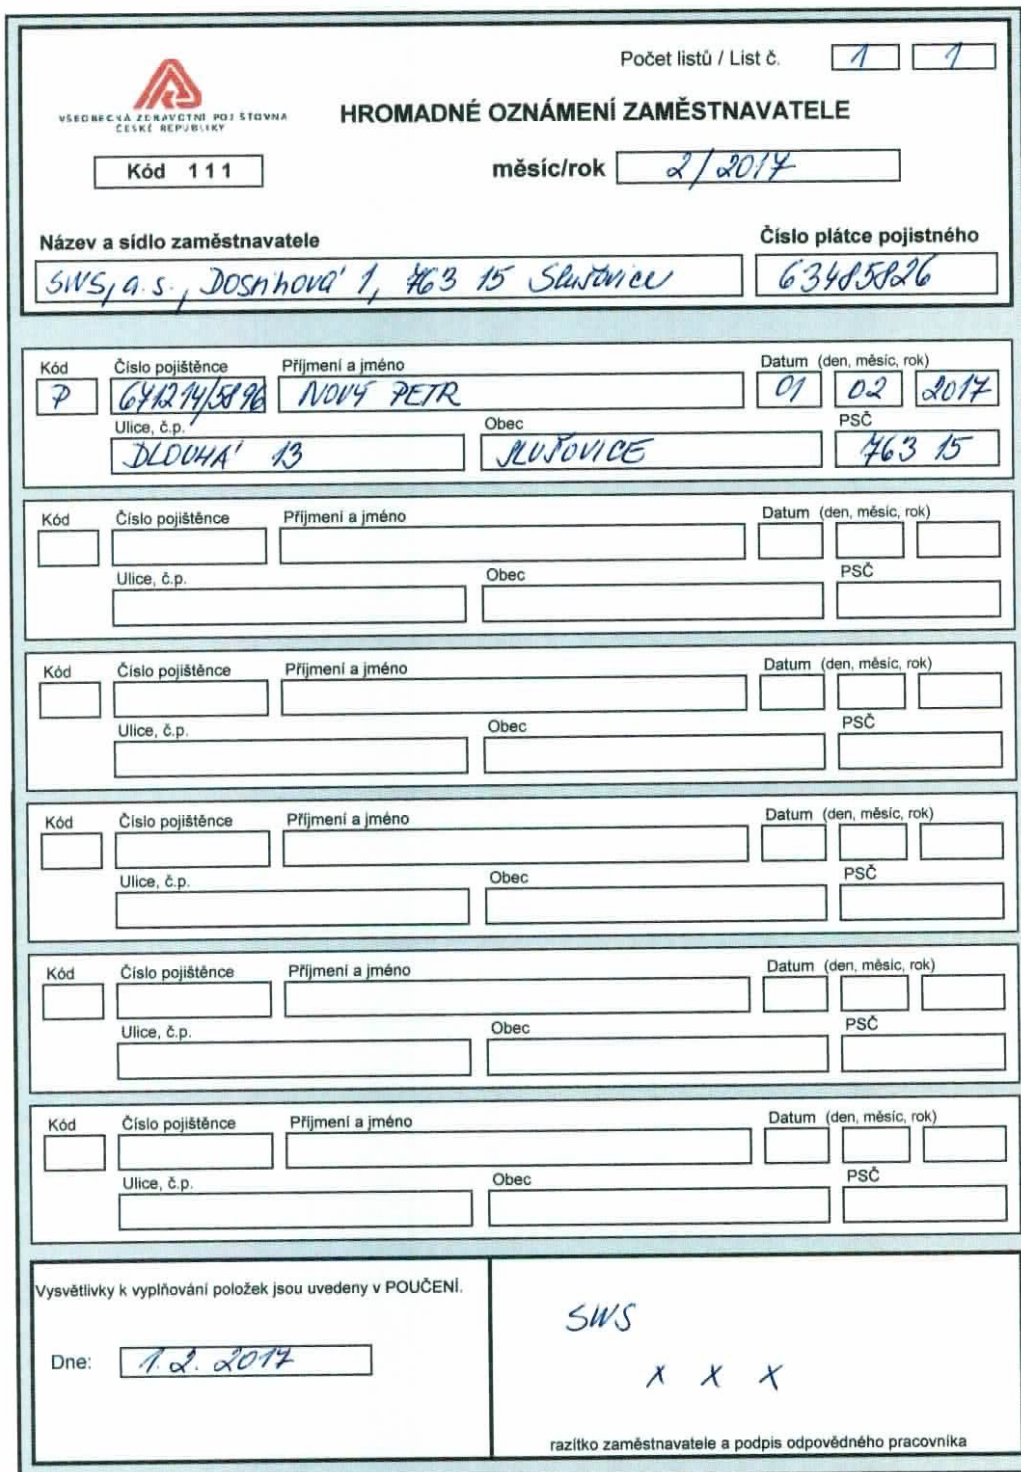 Počet listů / List č. 1 1
VŠEOBECNÁ ZDRAVOTNÍ POJIŠŤOVNA
ČESKÉ REPUBLIKY
HROMADNÉ OZNÁMENÍ ZAMĚSTNAVATELE
Kód 111
měsíc/rok 2/2017
Název a sídlo zaměstnavatele
Číslo plátce pojistného
SWS, a.s., 1, 763 15 Slušovice
63485826
Kód Číslo pojištěnce Příjmení a jméno Datum (den, měsíc, rok)
P NOVÝ PETR 01 02 2017
Ulice, č.p. Obec PSČ
DLOUHÁ 13 SLUŠOVICE 763 15
Kód Číslo pojištěnce Příjmení a jméno Datum (den, měsíc, rok)
Ulice, č.p. Obec PSČ
Kód Číslo pojištěnce Příjmení a jméno Datum (den, měsíc, rok)
Ulice, č.p. Obec PSČ
Kód Číslo pojištěnce Příjmení a jméno Datum (den, měsíc, rok)
Ulice, č.p. Obec PSČ
Kód Číslo pojištěnce Příjmení a jméno Datum (den, měsíc, rok)
Ulice, č.p. Obec PSČ
Kód Číslo pojištěnce Příjmení a jméno Datum (den, měsíc, rok)
Ulice, č.p. Obec PSČ
Vysvětlivky k vyplňování položek jsou uvedeny v POUČENÍ.
SWS
Dne: 1.2. 2017
x x x
razítko zaměstnavatele a podpis odpovědného pracovníka